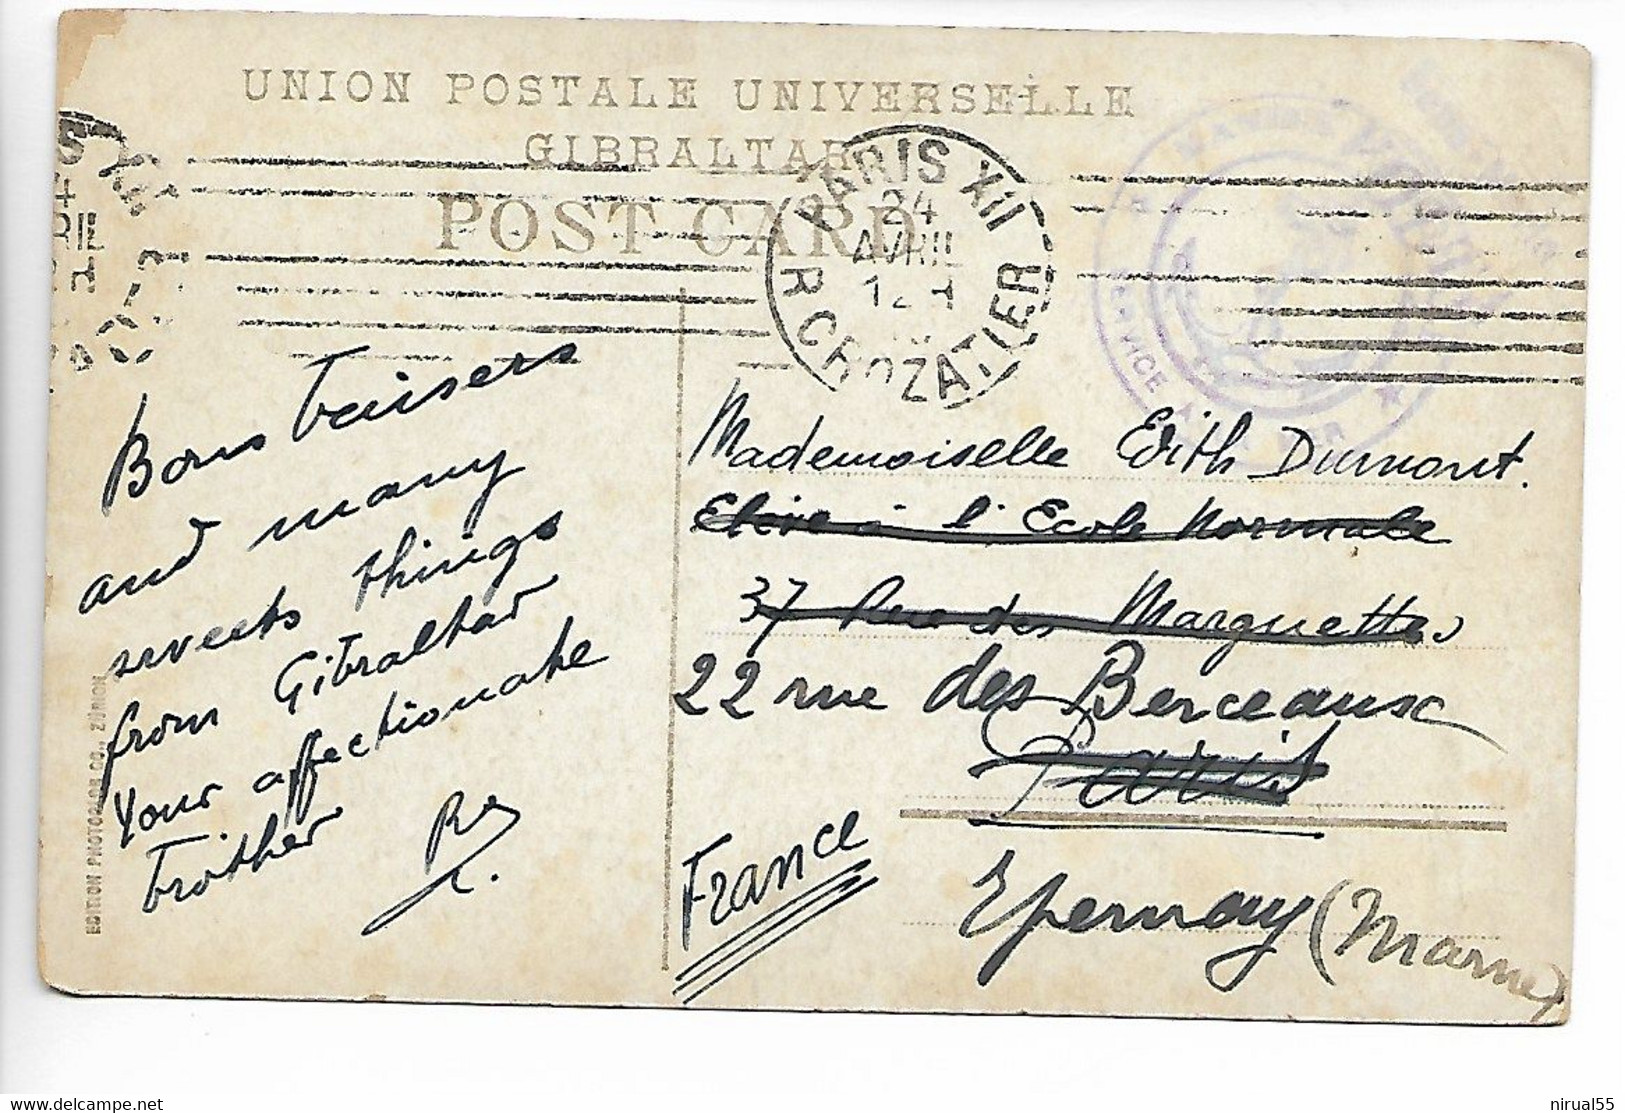 UNION POSTALE UNIVERSELLE
GIBRALTAR
POST CARD
PARIS XII
24
AVRIL
R CROZATIER
SERVICE A LA MER
Bons baisers
and many
sweets things
from Gibraltar
Your affectionate
brother
Mademoiselle Edith Dumont.
Elève à l'Ecole Normale
37 Rue des Marguettes
22 rue des Berceaux
Paris
France
Epernay (Marne)
EDITION PHOTOGLOB CO., ZÜRICH
delcampe.net
nirual55